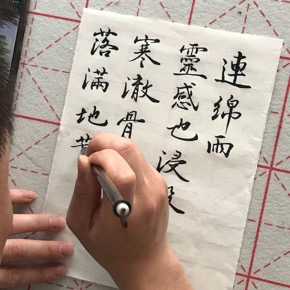 連綿雨
靈感也浸
寒澈骨
落滿地